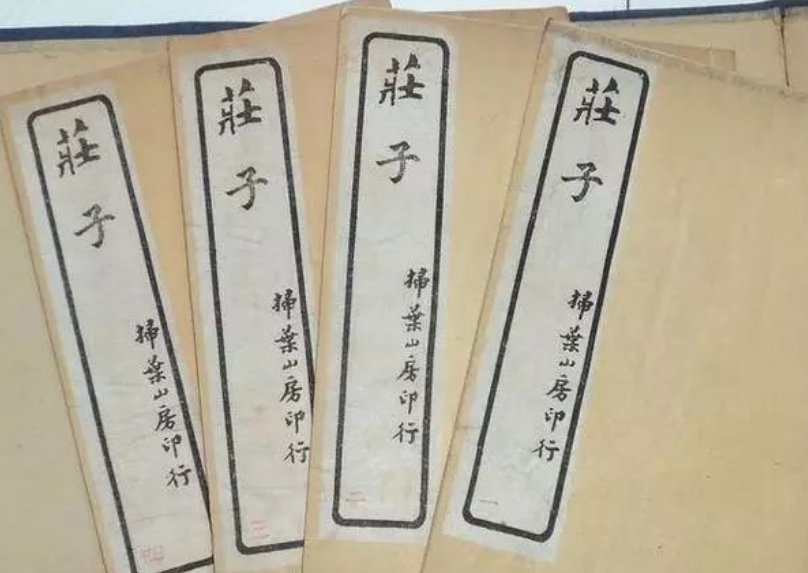 莊子
掃葉山房印行
莊子
掃葉山房印行
莊子
掃葉山房印行
莊子
掃葉山房印行